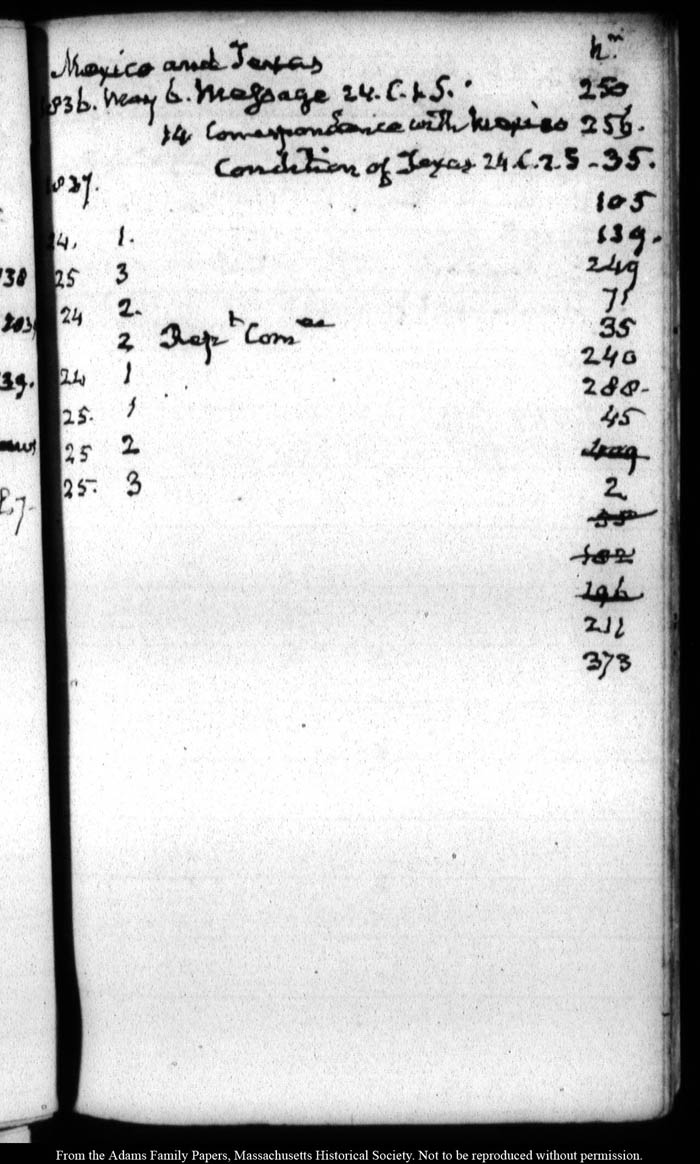 Mexico and Texas N.m
1836. May 6. Message 24. C. 1 S. 250
14 Correspondence with Mexico 256.
Condition of Texas 24. C. 2 S - 35.
1837.
105
24. 1. 139.
38 25 3 249
24 2. 71
2 Rept Comee 35
240
39. 24 1 288.
25. 1 45
25 2 409
25. 3 2
55
182
196
211
373
From the Adams Family Papers, Massachusetts Historical Society. Not to be reproduced without permission.